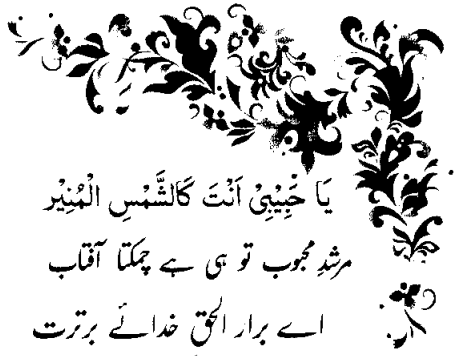 يَا حَبِيْبِيْ اَنْتَ كَالشَّمْسِ الْمُنِيْر
مرشدِ محبوب تو ہی ہے چمکتا آفتاب
اے برار الحق خدائے برترت